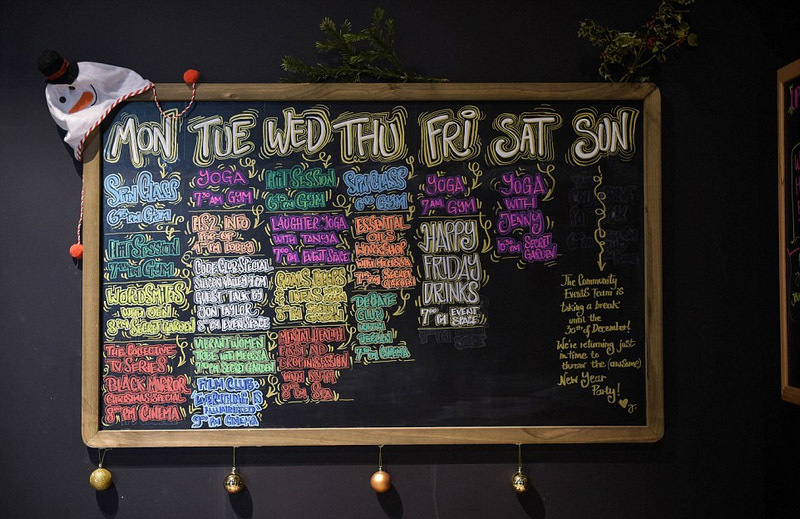 MON TUE WED THU FRI SAT SUN
SPIN CLASS
6PM GYM
HIIT SESSION
7PM GYM
WORDSMITHS
WITH
8PM SECRET GARDEN
THE COLLECTIVE
TV SERIES
BLACK MIRROR
CHRISTMAS SPECIAL
8PM CINEMA
YOGA
7AM GYM
HS2 INFO
LOBBY
CODE CLUB SPECIAL
SILICON VALLEY COM
GUEST TALK BY
JON TAYLOR
8PM EVENT SPACE
VIBRANT WOMEN
TRIBE WITH MELISSA
7PM SECRET GARDEN
FILM CLUB:
EVERYTHING IS
ILLUMINATED
9PM CINEMA
HIIT SESSION
6PM GYM
LAUGHTER YOGA
WITH TANYA
7PM EVENT SPACE
MENTAL HEALTH
FIRST AID
DROP IN SESSION
WITH
8PM SPA
SPIN CLASS
6PM GYM
ESSENTIAL
OILS
WORKSHOP
WITH MELISSA
7PM SECRET
GARDEN
DEBATE
CLUB
WITH
7PM CINEMA
YOGA
7AM GYM
HAPPY
FRIDAY
DRINKS
7PM EVENT
SPACE
YOGA
WITH
JENNY
10AM SECRET
GARDEN
The Community
Events Team is
taking a break
until the
30th of December!
We're returning just
in time to
throw the (awesome)
New Year
Party!